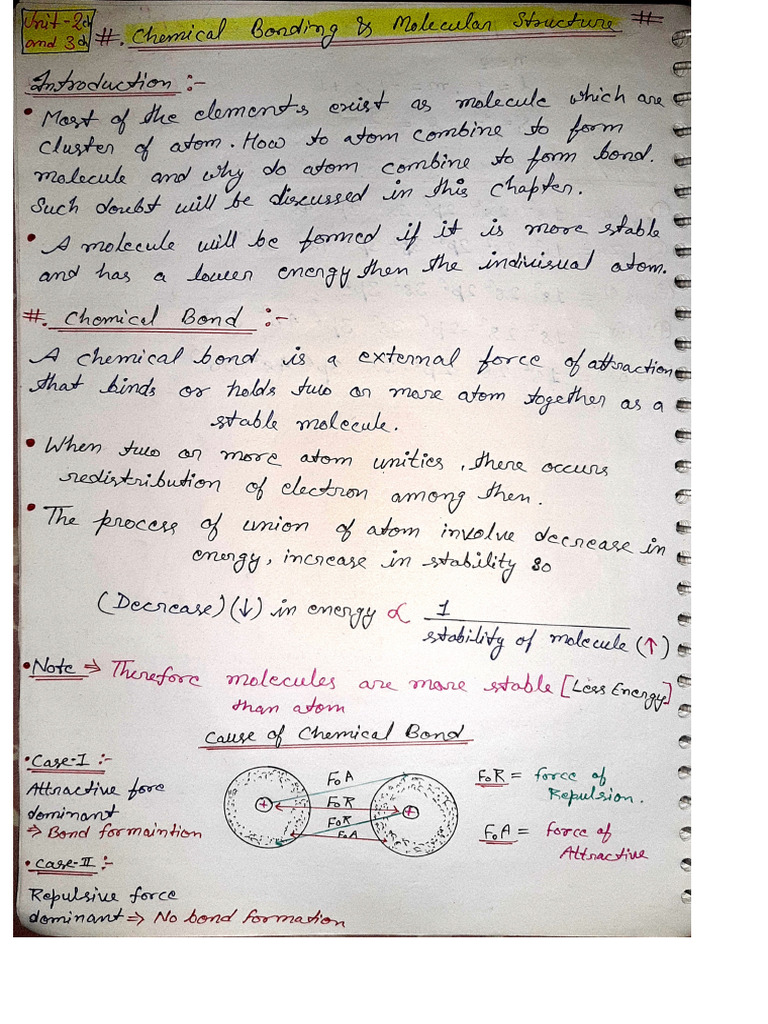 Unit-2d and 3d
#. Chemical Bonding & Molecular Structure #
Introduction :-
• Most of the elements exist as molecule which are
cluster of atom. How to atom combine to form
molecule and why do atom combine to form bond.
Such doubt will be discussed in this chapter.
• A molecule will be formed if it is more stable
and has a lower energy then the indivisual atom.
#. Chemical Bond :-
A chemical bond is a external force of attraction
that binds or holds two or more atom together as a
stable molecule.
• When two or more atom unities, there occurs
redistribution of electron among then.
• The process of union of atom involve decrease in
energy, increase in stability so
(Decrease) (↓) in energy ∝ 1
stability of molecule (↑)
• Note ⇒ Therefore molecules are more stable [Less Energy]
than atom
Cause of Chemical Bond
• Case-I :-
Attractive fore
dominant
⇒ Bond formaintion
FoA
FoR
FoR
FoA
+
+
FoR = force of
Repulsion.
FoA = force of
Attractive
• Case-II :-
Repulsive force
dominant ⇒ No bond formation